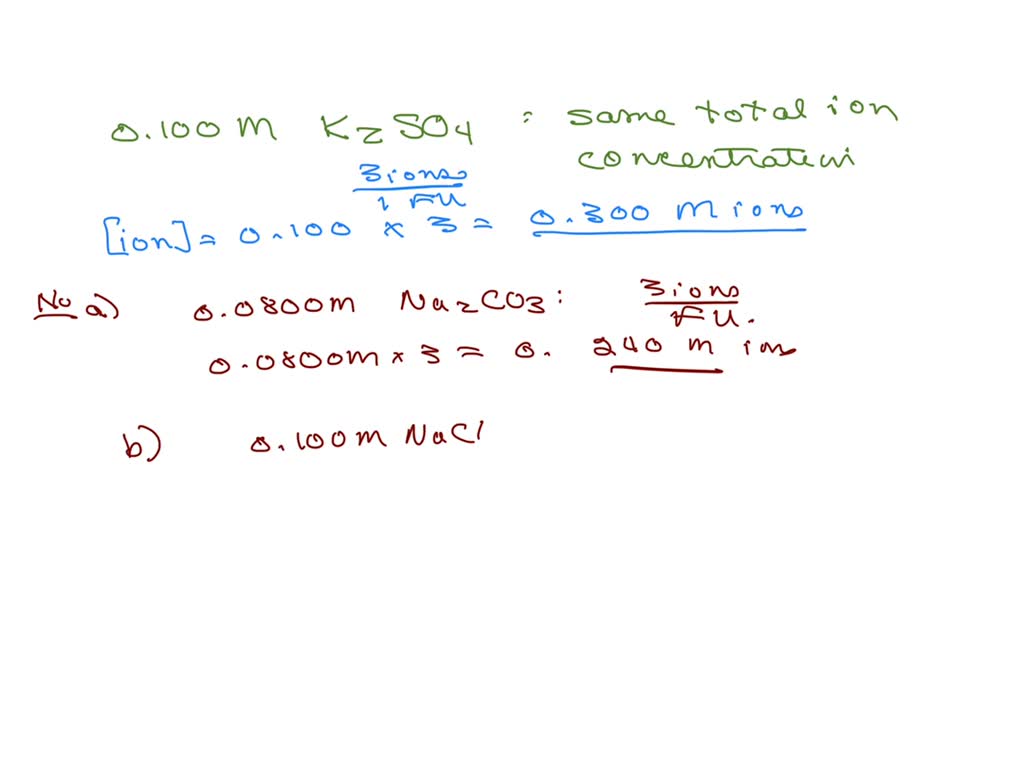 0.100 M K2SO4 : same total ion
concentration
3 ions
1 FU
[ion] = 0.100 × 3 = 0.300 M ions
No a) 0.0800 M Na2CO3 : 3 ions
FU.
0.0800 M × 3 = 0.240 M ion
b) 0.100 M NaCl